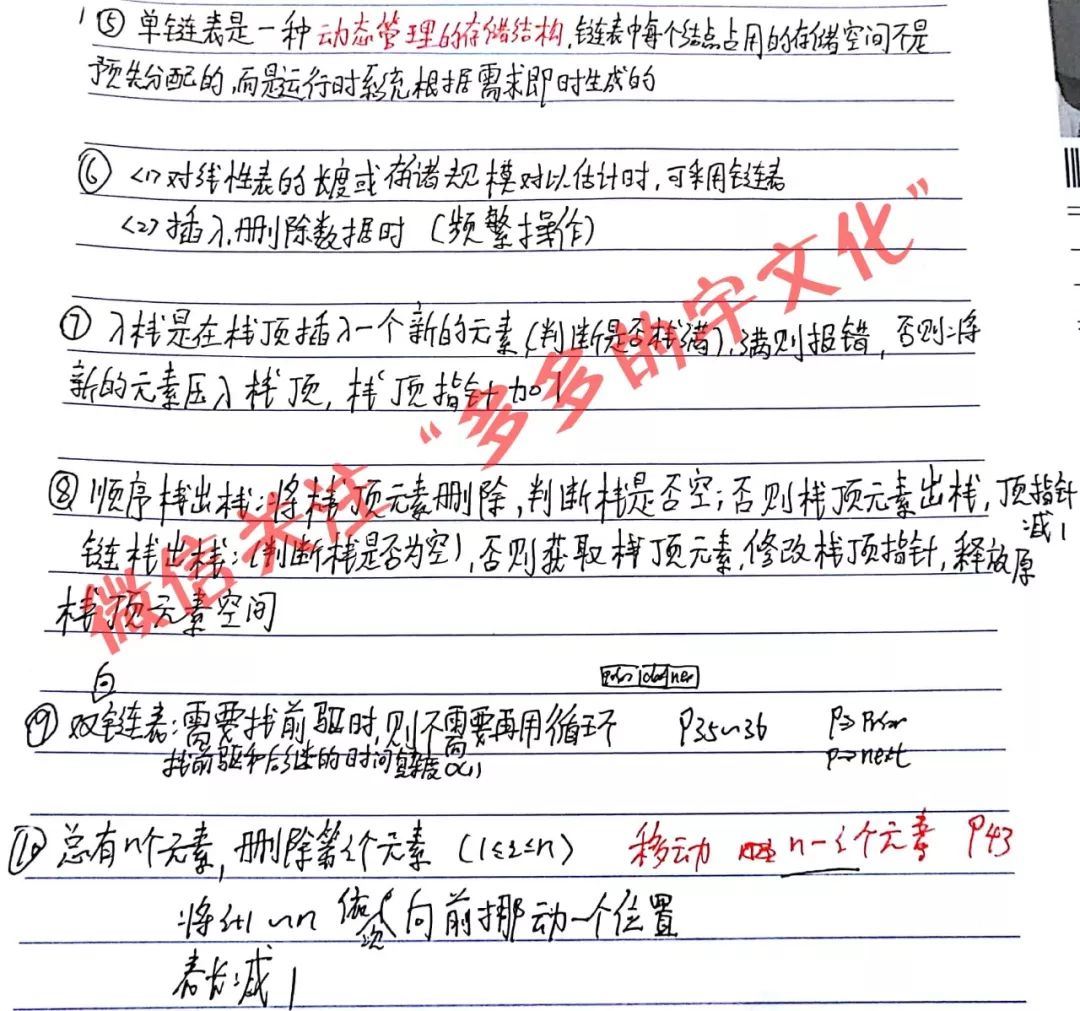 ⑤ 单链表是一种动态管理的存储结构,链表中每个结点占用的存储空间不是
预先分配的,而是运行时系统根据需求即时生成的
⑥ <1>对线性表的长度或存诸规模对以估计时,可采用链表
<2>插入,删除数据时（频繁操作）
⑦ 入栈是在栈顶插入一个新的元素(判断是否栈满),满则报错,否则将
新的元素压入栈顶,栈顶指针加1
⑧ 顺序栈出栈:将栈顶元素删除,判断栈是否空;否则栈顶元素出栈,顶指针
减1
链栈出栈:(判断栈是否为空),否则获取栈顶元素,修改栈顶指针,释放原
栈顶元素空间
向
⑨ 双链表:需要找前驱时,则不需要再用循环 P35~36 P→prior
找前驱和后继的时间复杂度 O(1) P→next
⑩ 总有n个元素,删除第i个元素 (1≤i≤n) 移动 n-i个元素 P43
将i+1~n 依次向前挪动一个位置
表长减1
微信关注“多多的字文化”